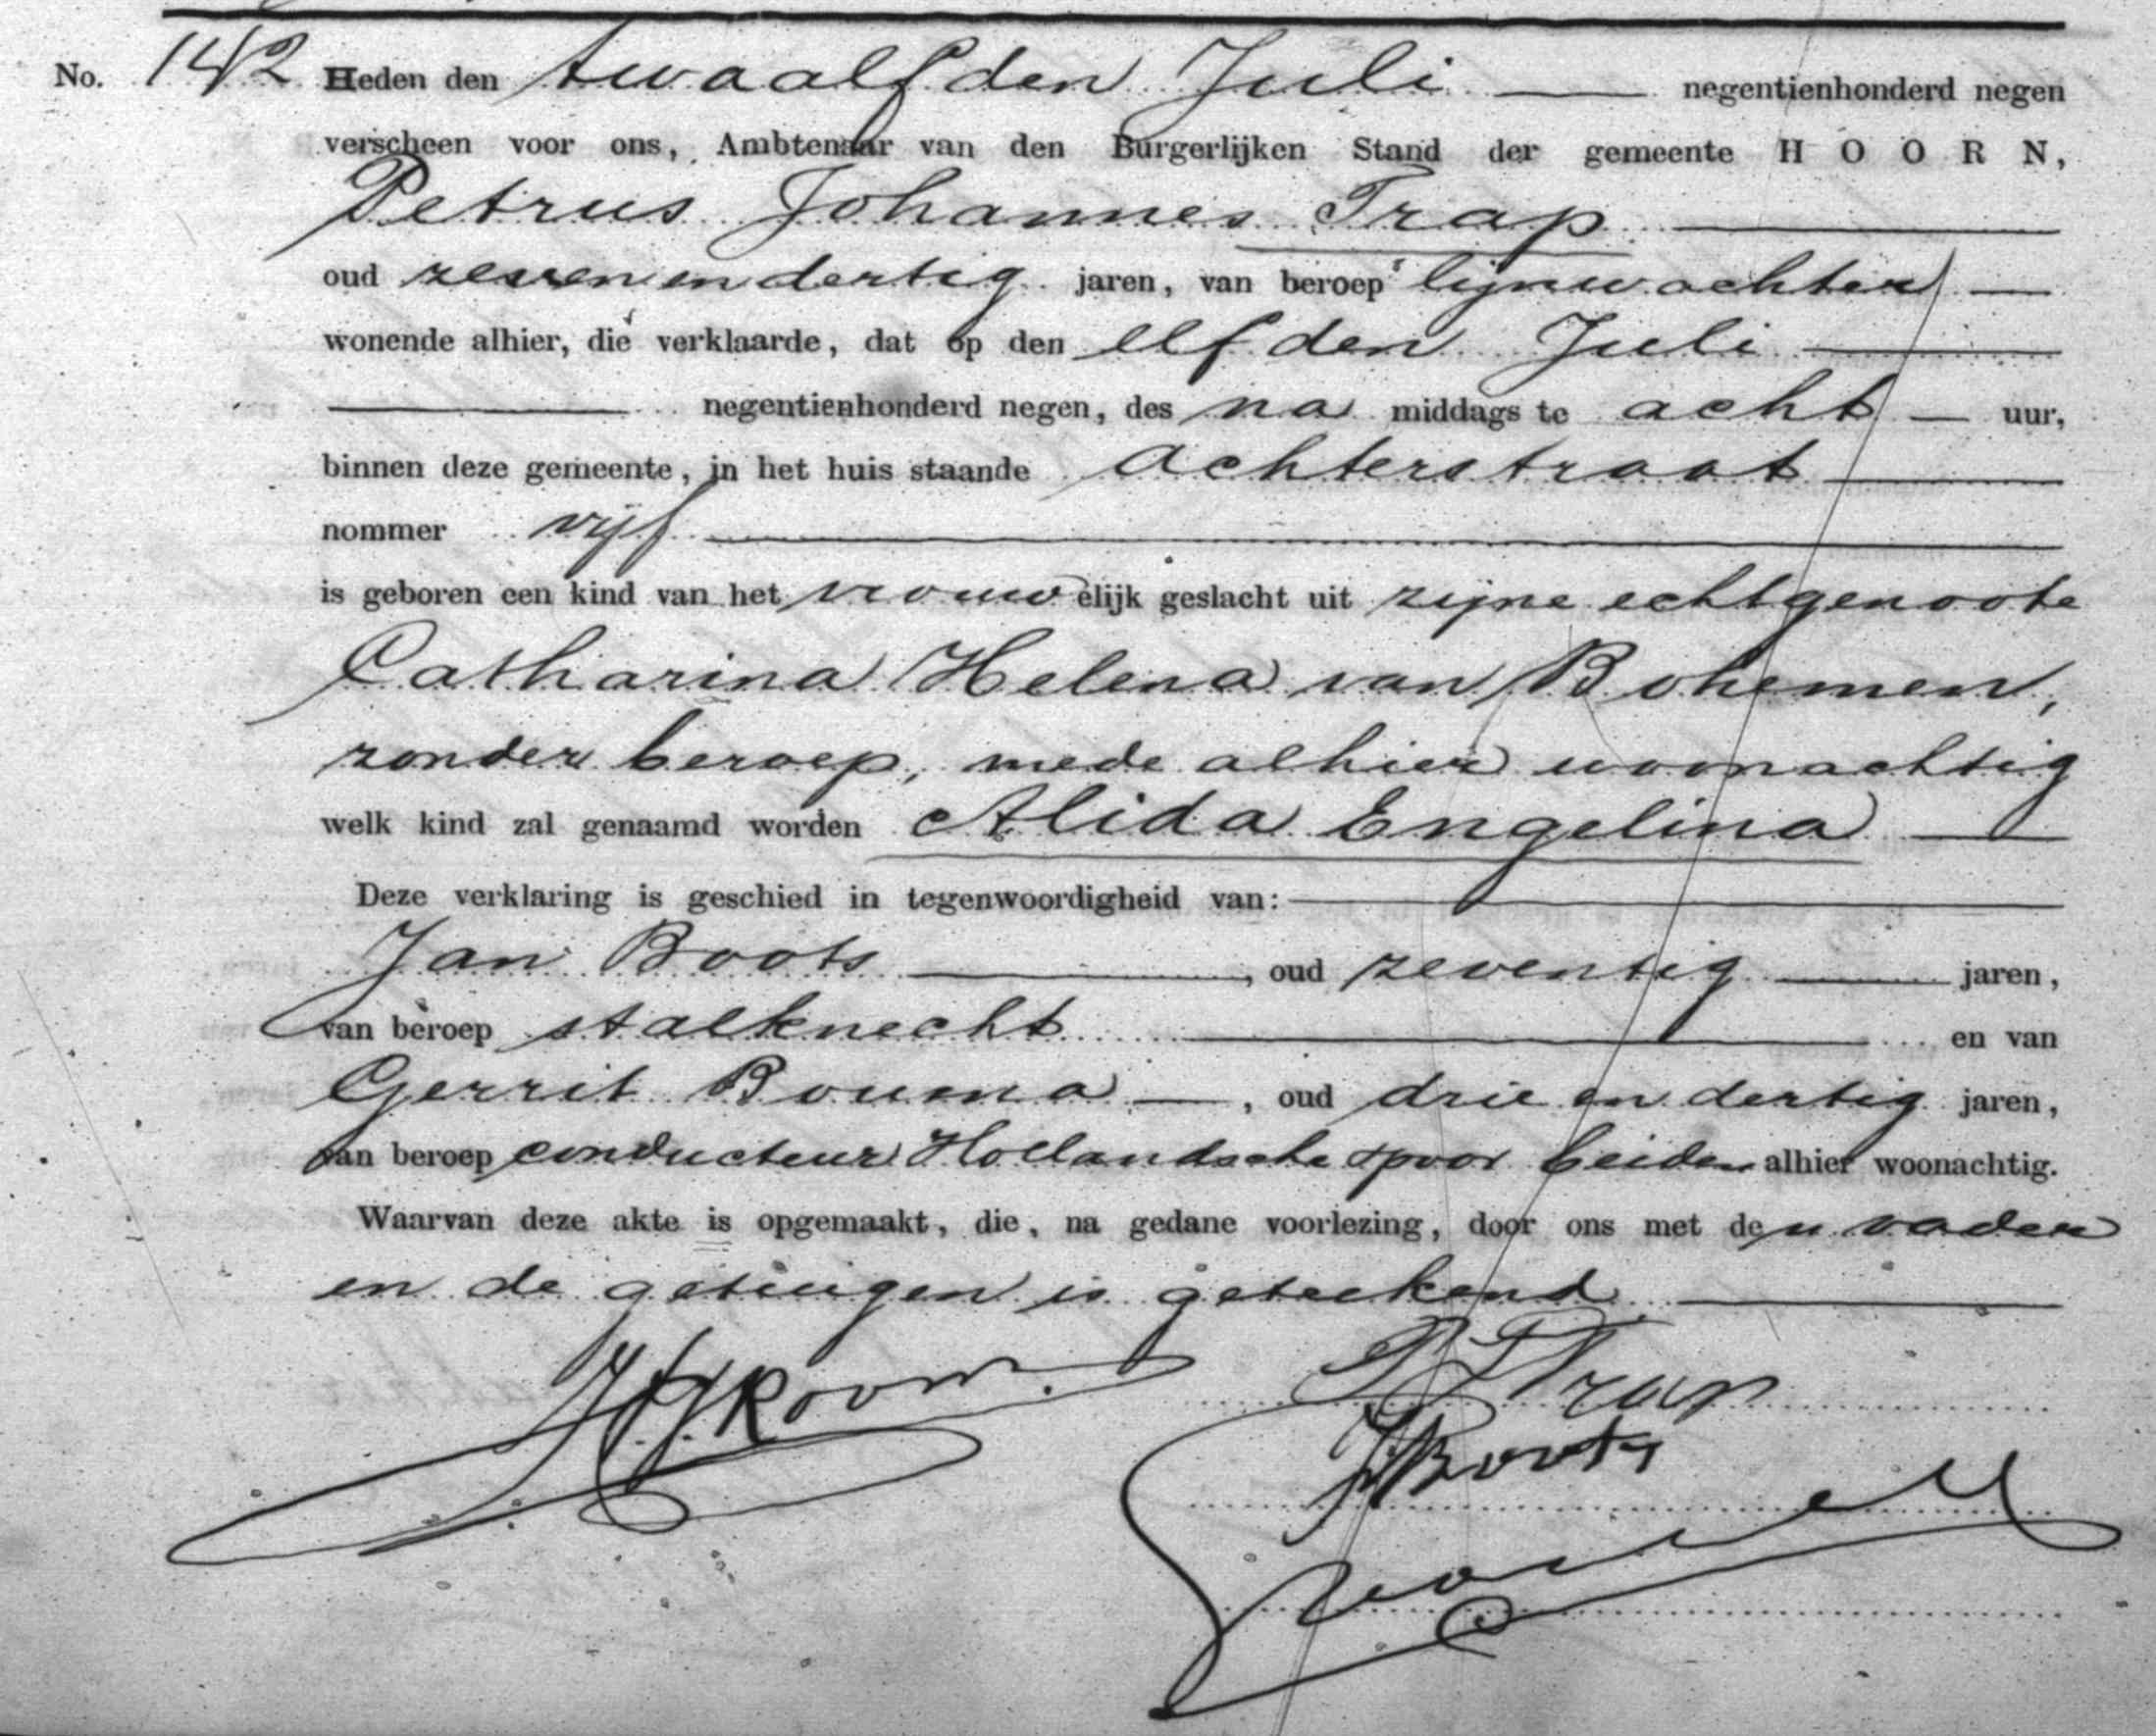 No. 142 Heden den twaalfden Juli negentienhonderd negen
verscheen voor ons, Ambtenaar van den Burgerlijken Stand der gemeente HOORN,
Petrus Johannes Trap
oud zessenendertig jaren, van beroep lijnwachter
wonende alhier, die verklaarde, dat op den elfden Juli
negentienhonderd negen, des na middags te acht uur,
binnen deze gemeente, in het huis staande Achterstraat
nommer vijf
is geboren een kind van het vrouwelijk geslacht uit zijne echtgenoote
Catharina Helena van Bohemen,
zonder beroep, mede alhier woonachtig
welk kind zal genaamd worden Alida Engelina
Deze verklaring is geschied in tegenwoordigheid van:
Jan Boots, oud zeventig jaren,
van beroep stalknecht en van
Gerrit Bouma, oud drie en dertig jaren,
van beroep conducteur Hollandsche spoor beiden alhier woonachtig.
Waarvan deze akte is opgemaakt, die, na gedane voorlezing, door ons met den vader
en de getuigen is geteekend
P J Trap
J Boots